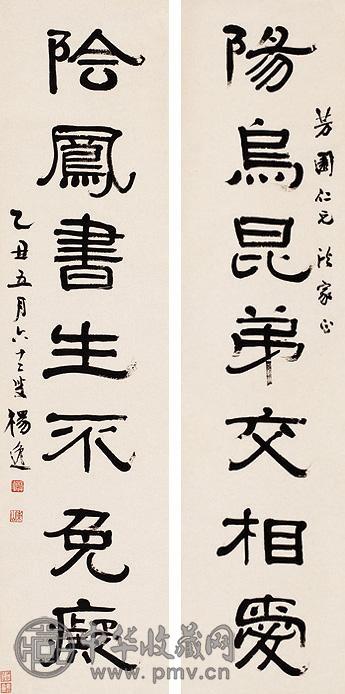 芳圃仁兄法家正
陽烏昆弟交相愛
陰鳳書生不免癡
乙丑五月六十二叟楊逸
中华收藏网
www.pmv.cn